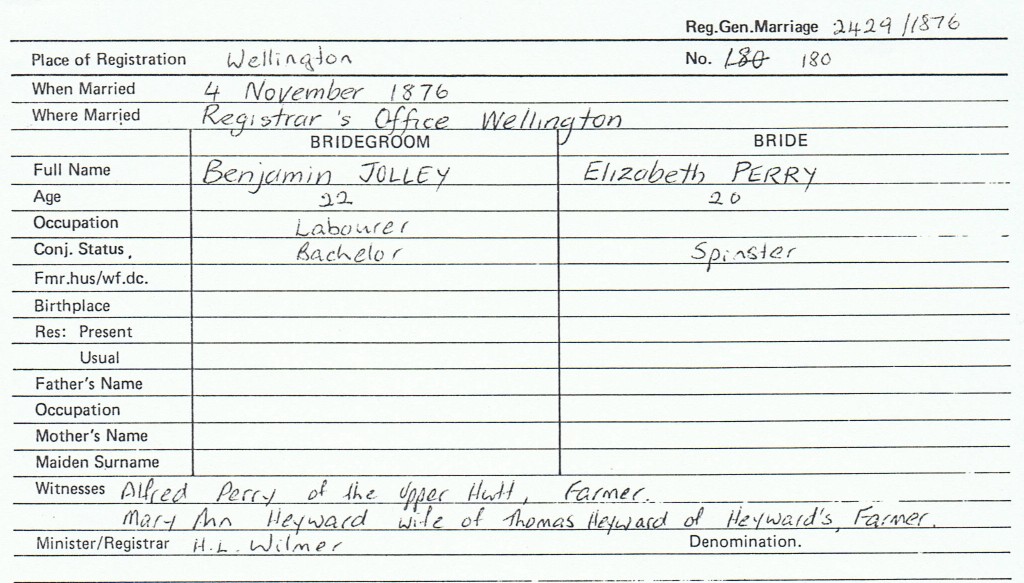 Reg.Gen.Marriage 2429/1876
Place of Registration Wellington No. 180 180
When Married 4 November 1876
Where Married Registrar's Office Wellington
BRIDEGROOM BRIDE
Full Name Benjamin JOLLEY Elizabeth PERRY
Age 22 20
Occupation Labourer
Conj. Status. Bachelor Spinster
Fmr.hus/wf.dc.
Birthplace
Res: Present
Usual
Father's Name
Occupation
Mother's Name
Maiden Surname
Witnesses Alfred Perry of the Upper Hutt, Farmer.
Mary Ann Heyward wife of Thomas Heyward of Heyward's, Farmer.
Minister/Registrar H.L. Wilmer Denomination.